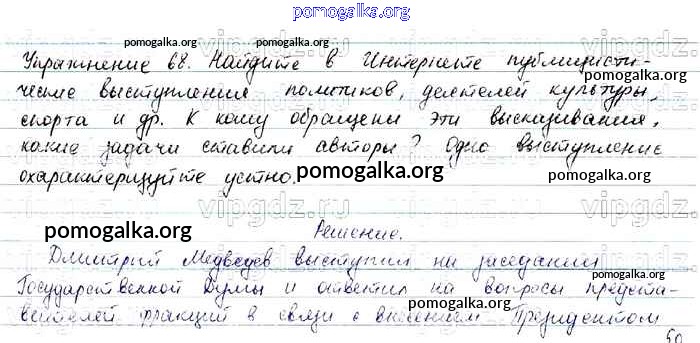 pomogalka.org
Упражнение 68. Найдите в Интернете публицисти-
ческие выступления политиков, деятелей культуры,
спорта и др. К кому обращены эти высказывания,
какие задачи ставили авторы? Одно выступление
охарактеризуйте устно.
Решение.
Дмитрий Медведев выступил на заседании
Государственной Думы и ответил на вопросы предста-
вителей фракций в связи с внесением Президентом
50
pomogalka.org
pomogalka.org
pomogalka.org
pomogalka.org
pomogalka.org
pomogalka.org
pomogalka.org
pomogalka.org
pomogalka.org
vipgdz.ru
vipgdz.ru